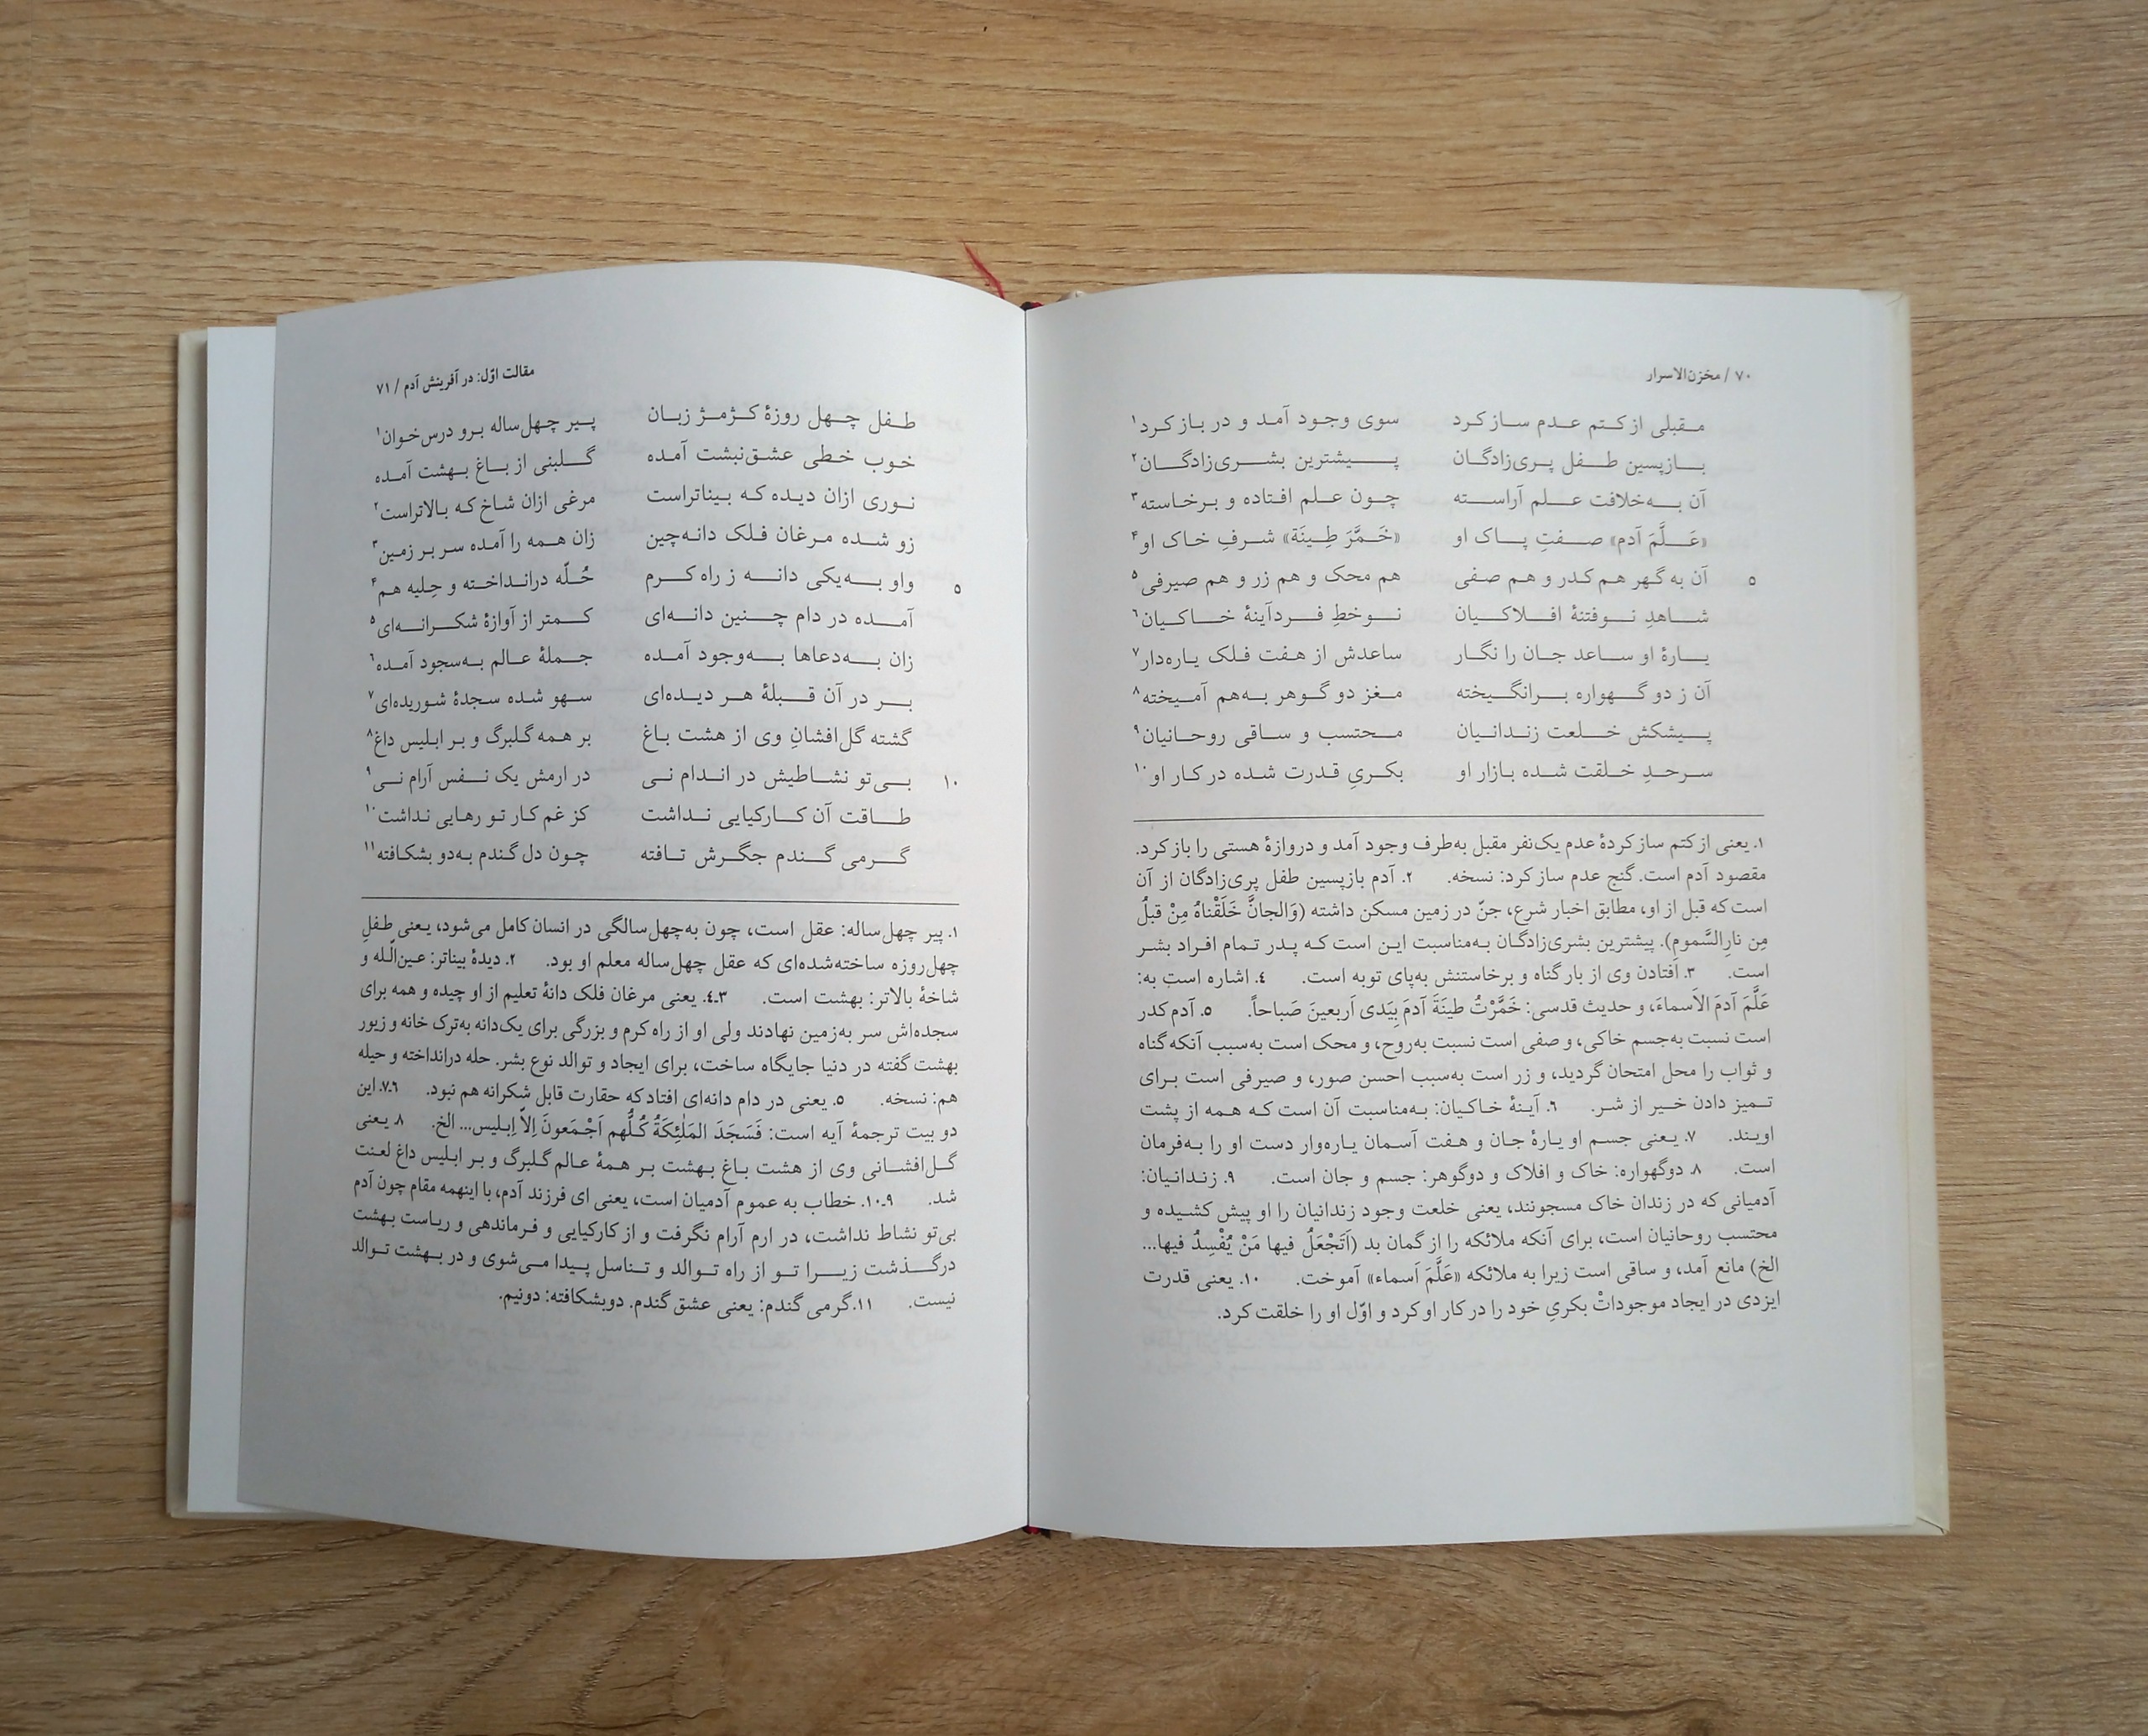 ۷۰ / مخزن‌الاسرار
مقبلی از کتم عدم ساز کرد سوی وجود آمد و در باز کرد۱
بازپسین طفل پری‌زادگان پیشترین بشری‌زادگان۲
آن به‌خلافت علم آراسته چون علم افتاده و برخاسته۳
«عَلَّمَ آدم» صفتِ پاک او «خَمَّرَ طِینَة» شرفِ خاک او۴
۵ آن به گهر هم کدر و هم صفی هم محک و هم زر و هم صیرفی۵
شاهدِ نوفتنهٔ افلاکیان نوخطِ فردآینهٔ خاکیان۶
یارهٔ او ساعد جان را نگار ساعدش از هفت فلک یاره‌دار۷
آن ز دو گهواره برانگیخته مغز دو گوهر به‌هم آمیخته۸
پیشکش خلعت زندانیان محتسب و ساقی روحانیان۹
سرحدِ خلقت شده بازار او بکریِ قدرت شده در کار او۱۰
۱. یعنی از کتم ساز کردهٔ عدم یک‌نفر مقبل به‌طرف وجود آمد و دروازهٔ هستی را باز کرد.
مقصود آدم است. گنج عدم ساز کرد: نسخه. ۲. آدم بازپسین طفل پری‌زادگان از آن
است که قبل از او، مطابق اخبار شرع، جنّ در زمین مسکن داشته (وَالجانَّ خَلَقْناهُ مِنْ قبلُ
مِن نارِالسَّمومِ). پیشترین بشری‌زادگان به‌مناسبت این است که پدر تمام افراد بشر
است. ۳. افتادن وی از بار گناه و برخاستنش به‌پای توبه است. ۴. اشاره است به:
عَلَّمَ آدمَ الاَسماءَ، و حدیث قدسی: خَمَّرْتُ طینَةَ آدمَ بِیَدی اَربعینَ صَباحاً. ۵. آدم کدر
است نسبت به‌جسم خاکی، و صفی است نسبت به‌روح، و محک است به‌سبب آنکه گناه
و ثواب را محل امتحان گردید، و زر است به‌سبب احسن صور، و صیرفی است برای
تمیز دادن خیر از شر. ۶. آینهٔ خاکیان: به‌مناسبت آن است که همه از پشت
اویند. ۷. یعنی جسم او یارهٔ جان و هفت آسمان یاره‌وار دست او را به‌فرمان
است. ۸. دوگهواره: خاک و افلاک و دوگوهر: جسم و جان است. ۹. زندانیان:
آدمیانی که در زندان خاک مسجونند، یعنی خلعت وجود زندانیان را او پیش کشیده و
محتسب روحانیان است، برای آنکه ملائکه را از گمان بد (اَتَجْعَلُ فیها مَنْ یُفْسِدُ فیها...
الخ) مانع آمد، و ساقی است زیرا به ملائکه «عَلَّمَ اَسماء» آموخت. ۱۰. یعنی قدرت
ایزدی در ایجاد موجوداتْ بکریِ خود را در کار او کرد و اوّل او را خلقت کرد.
مقالت اوّل: در آفرینش آدم / ۷۱
طفل چهل روزهٔ کژمژ زبان پیر چهل‌ساله برو درس‌خوان۱
خوب خطی عشق‌نبشت آمده گلبنی از باغ بهشت آمده
نوری ازان دیده که بیناتراست مرغی ازان شاخ که بالاتراست۲
زو شده مرغان فلک دانه‌چین زان همه را آمده سر بر زمین۳
۵ واو به‌یکی دانه ز راه کرم حُلّه درانداخته و حِلیه هم۴
آمده در دام چنین دانه‌ای کمتر از آوازهٔ شکرانه‌ای۵
زان به‌دعاها به‌وجود آمده جملهٔ عالم به‌سجود آمده۶
بر در آن قبلهٔ هر دیده‌ای سهو شده سجدهٔ شوریده‌ای۷
گشته گل‌افشانِ وی از هشت باغ بر همه گلبرگ و بر ابلیس داغ۸
۱۰ بی‌تو نشاطیش در اندام نی در ارمش یک نفس آرام نی۹
طاقت آن کارکیایی نداشت کز غم کار تو رهایی نداشت۱۰
گرمی گندم جگرش تافته چون دل گندم به‌دو بشکافته۱۱
۱. پیر چهل‌ساله: عقل است، چون به‌چهل‌سالگی در انسان کامل می‌شود، یعنی طفلِ
چهل‌روزه ساخته‌شده‌ای که عقل چهل‌ساله معلم او بود. ۲. دیدهٔ بیناتر: عین‌اللّه و
شاخهٔ بالاتر: بهشت است. ۳ـ۴. یعنی مرغان فلک دانهٔ تعلیم از او چیده و همه برای
سجده‌اش سر به‌زمین نهادند ولی او از راه کرم و بزرگی برای یک‌دانه به‌ترک خانه و زیور
بهشت گفته در دنیا جایگاه ساخت، برای ایجاد و توالد نوع بشر. حله درانداخته و حیله
هم: نسخه. ۵. یعنی در دام دانه‌ای افتاد که حقارت قابل شکرانه هم نبود. ۶ـ۷. این
دو بیت ترجمهٔ آیه است: فَسَجَدَ المَلٰئِکَةُ کُلُّهم اَجْمَعونَ اِلاّ اِبلیس... الخ. ۸. یعنی
گل‌افشانی وی از هشت باغ بهشت بر همهٔ عالم گلبرگ و بر ابلیس داغ لعنت
شد. ۹ـ۱۰. خطاب به عموم آدمیان است، یعنی ای فرزند آدم، با اینهمه مقام چون آدم
بی‌تو نشاط نداشت، در ارم آرام نگرفت و از کارکیایی و فرماندهی و ریاست بهشت
درگذشت زیرا تو از راه توالد و تناسل پیدا می‌شوی و در بهشت توالد
نیست. ۱۱. گرمی گندم: یعنی عشق گندم. دوبشکافته: دونیم.